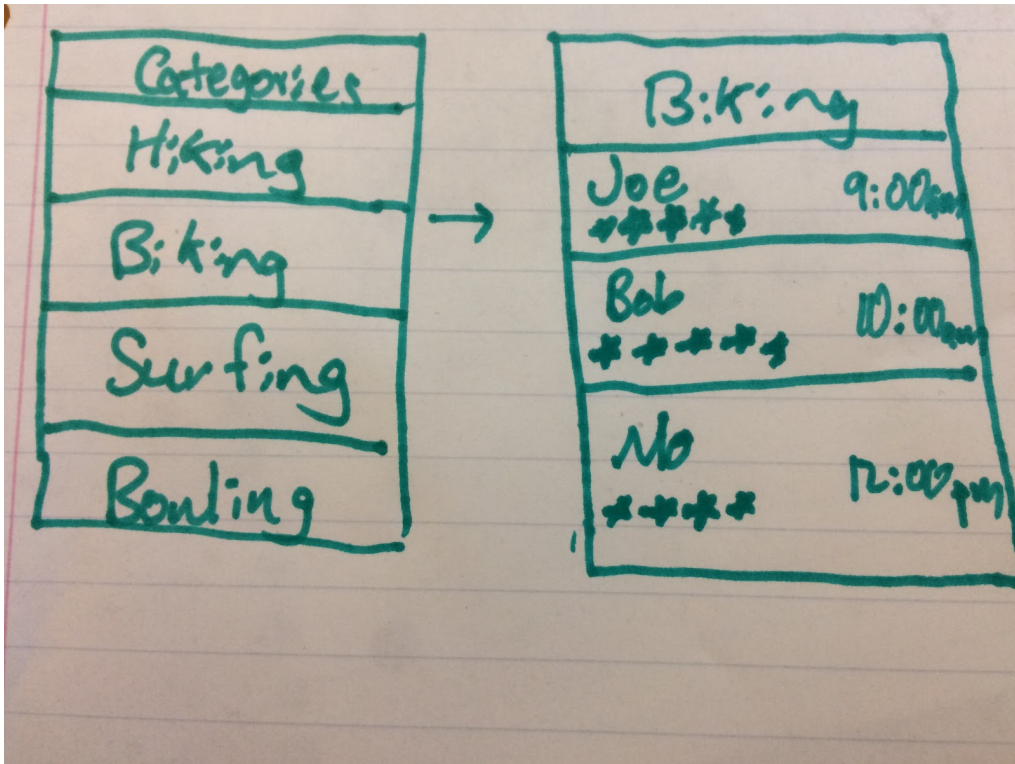 Categories
Hiking
Biking
Surfing
Bowling
Biking
Joe 9:00am
*****
Bob 10:00am
*****
Mo 12:00pm
****